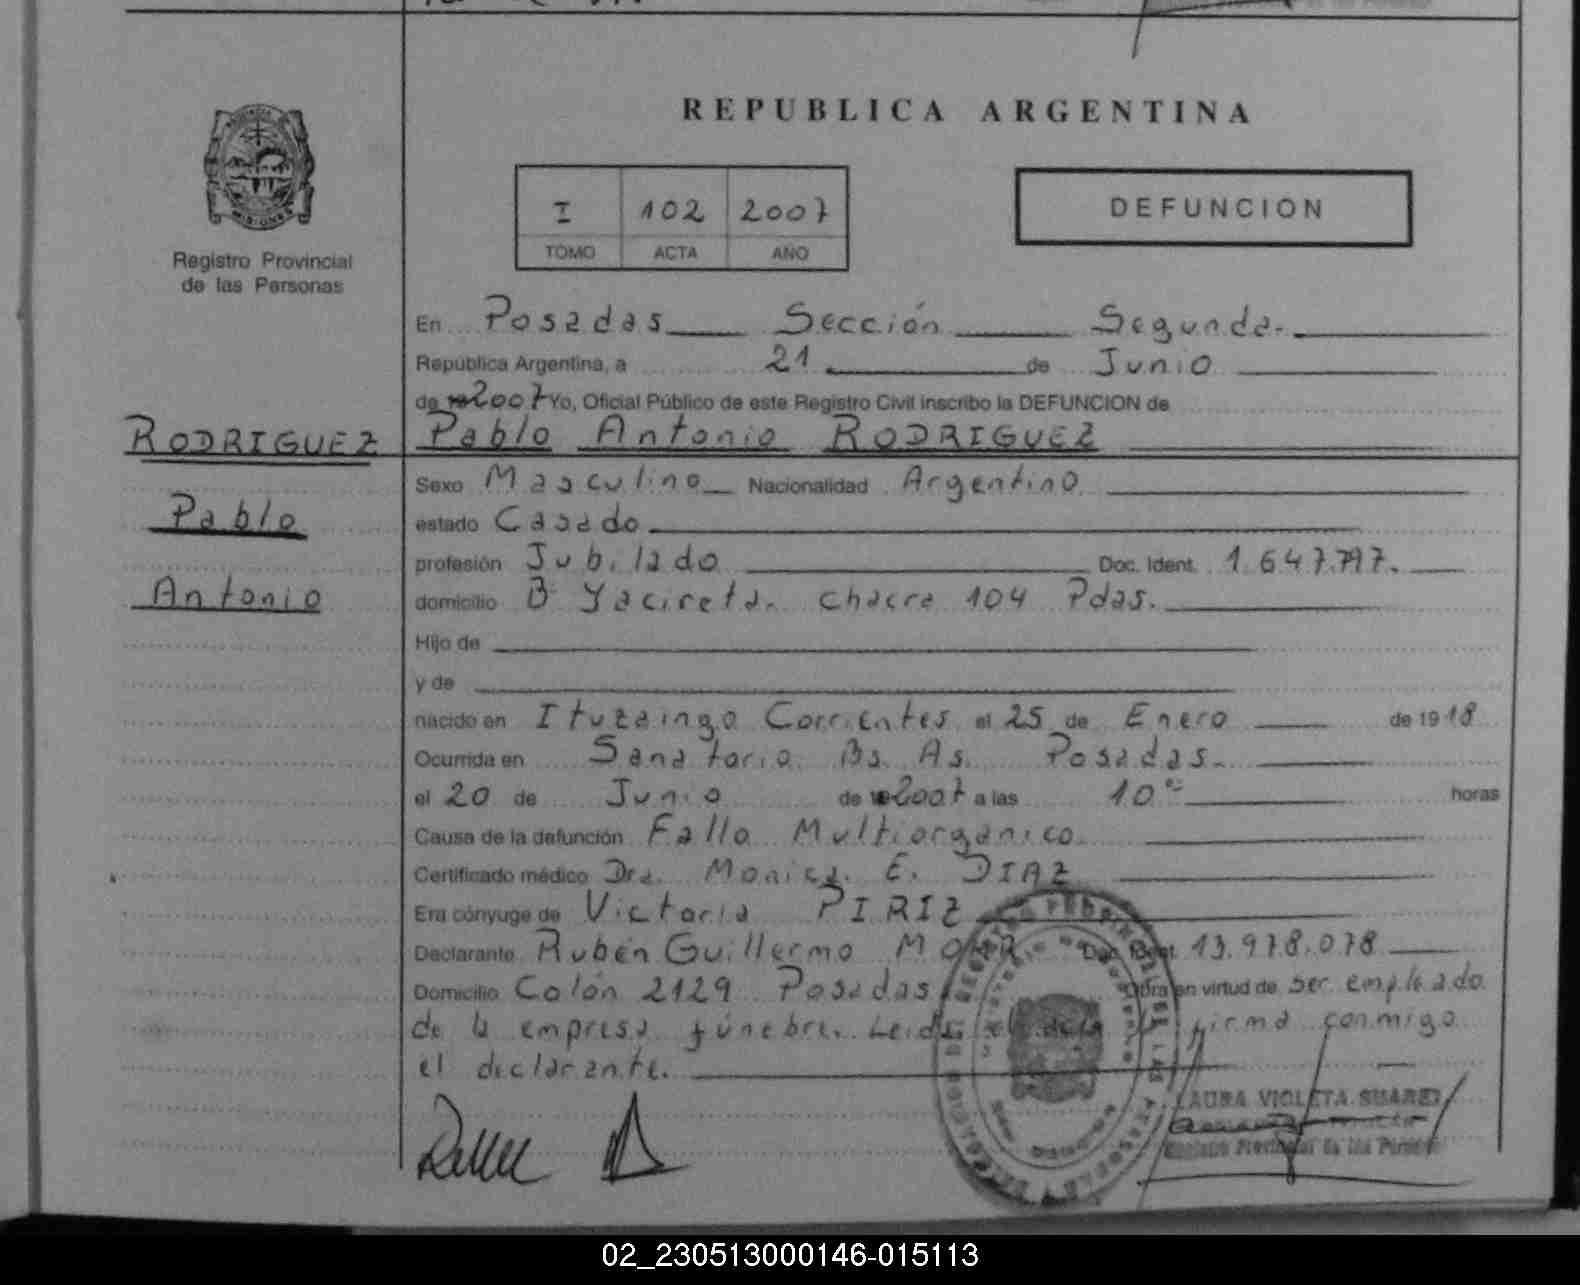 REPUBLICA ARGENTINA
MISIONES
Registro Provincial
de las Personas
I 102 2007
TOMO ACTA AÑO
DEFUNCION
En Posadas Sección Segunda.
República Argentina, a 21 de Junio
de 2007 Yo, Oficial Público de este Registro Civil inscribo la DEFUNCION de
RODRIGUEZ Pablo Antonio RODRIGUEZ
Pablo
Antonio
Sexo Masculino Nacionalidad Argentino
estado Casado
profesión Jubilado Doc. Ident. 1.647.797.
domicilio Bº Yacireta. chacra 104 Pdas.
Hijo de
y de
nacido en Ituzaingo Corrientes el 25 de Enero de 1918
Ocurrida en Sanatorio Bs. As. Posadas.
el 20 de Junio de 2007 a las 10 horas
Causa de la defunción Falla Multiorganico
Certificado médico Dra. Monica E. DIAZ
Era cónyuge de Victoria PIRIZ
Declarante Rubén Guillermo Doc. Ident. 13.978.078
Domicilio Colón 2129 Posadas Obra en virtud de ser empleado
de la empresa fúnebre. Leida el firma conmigo
el declarante.
LAURA VIOLETA SUAREZ
Registro Provincial de las Personas
02_230513000146-015113